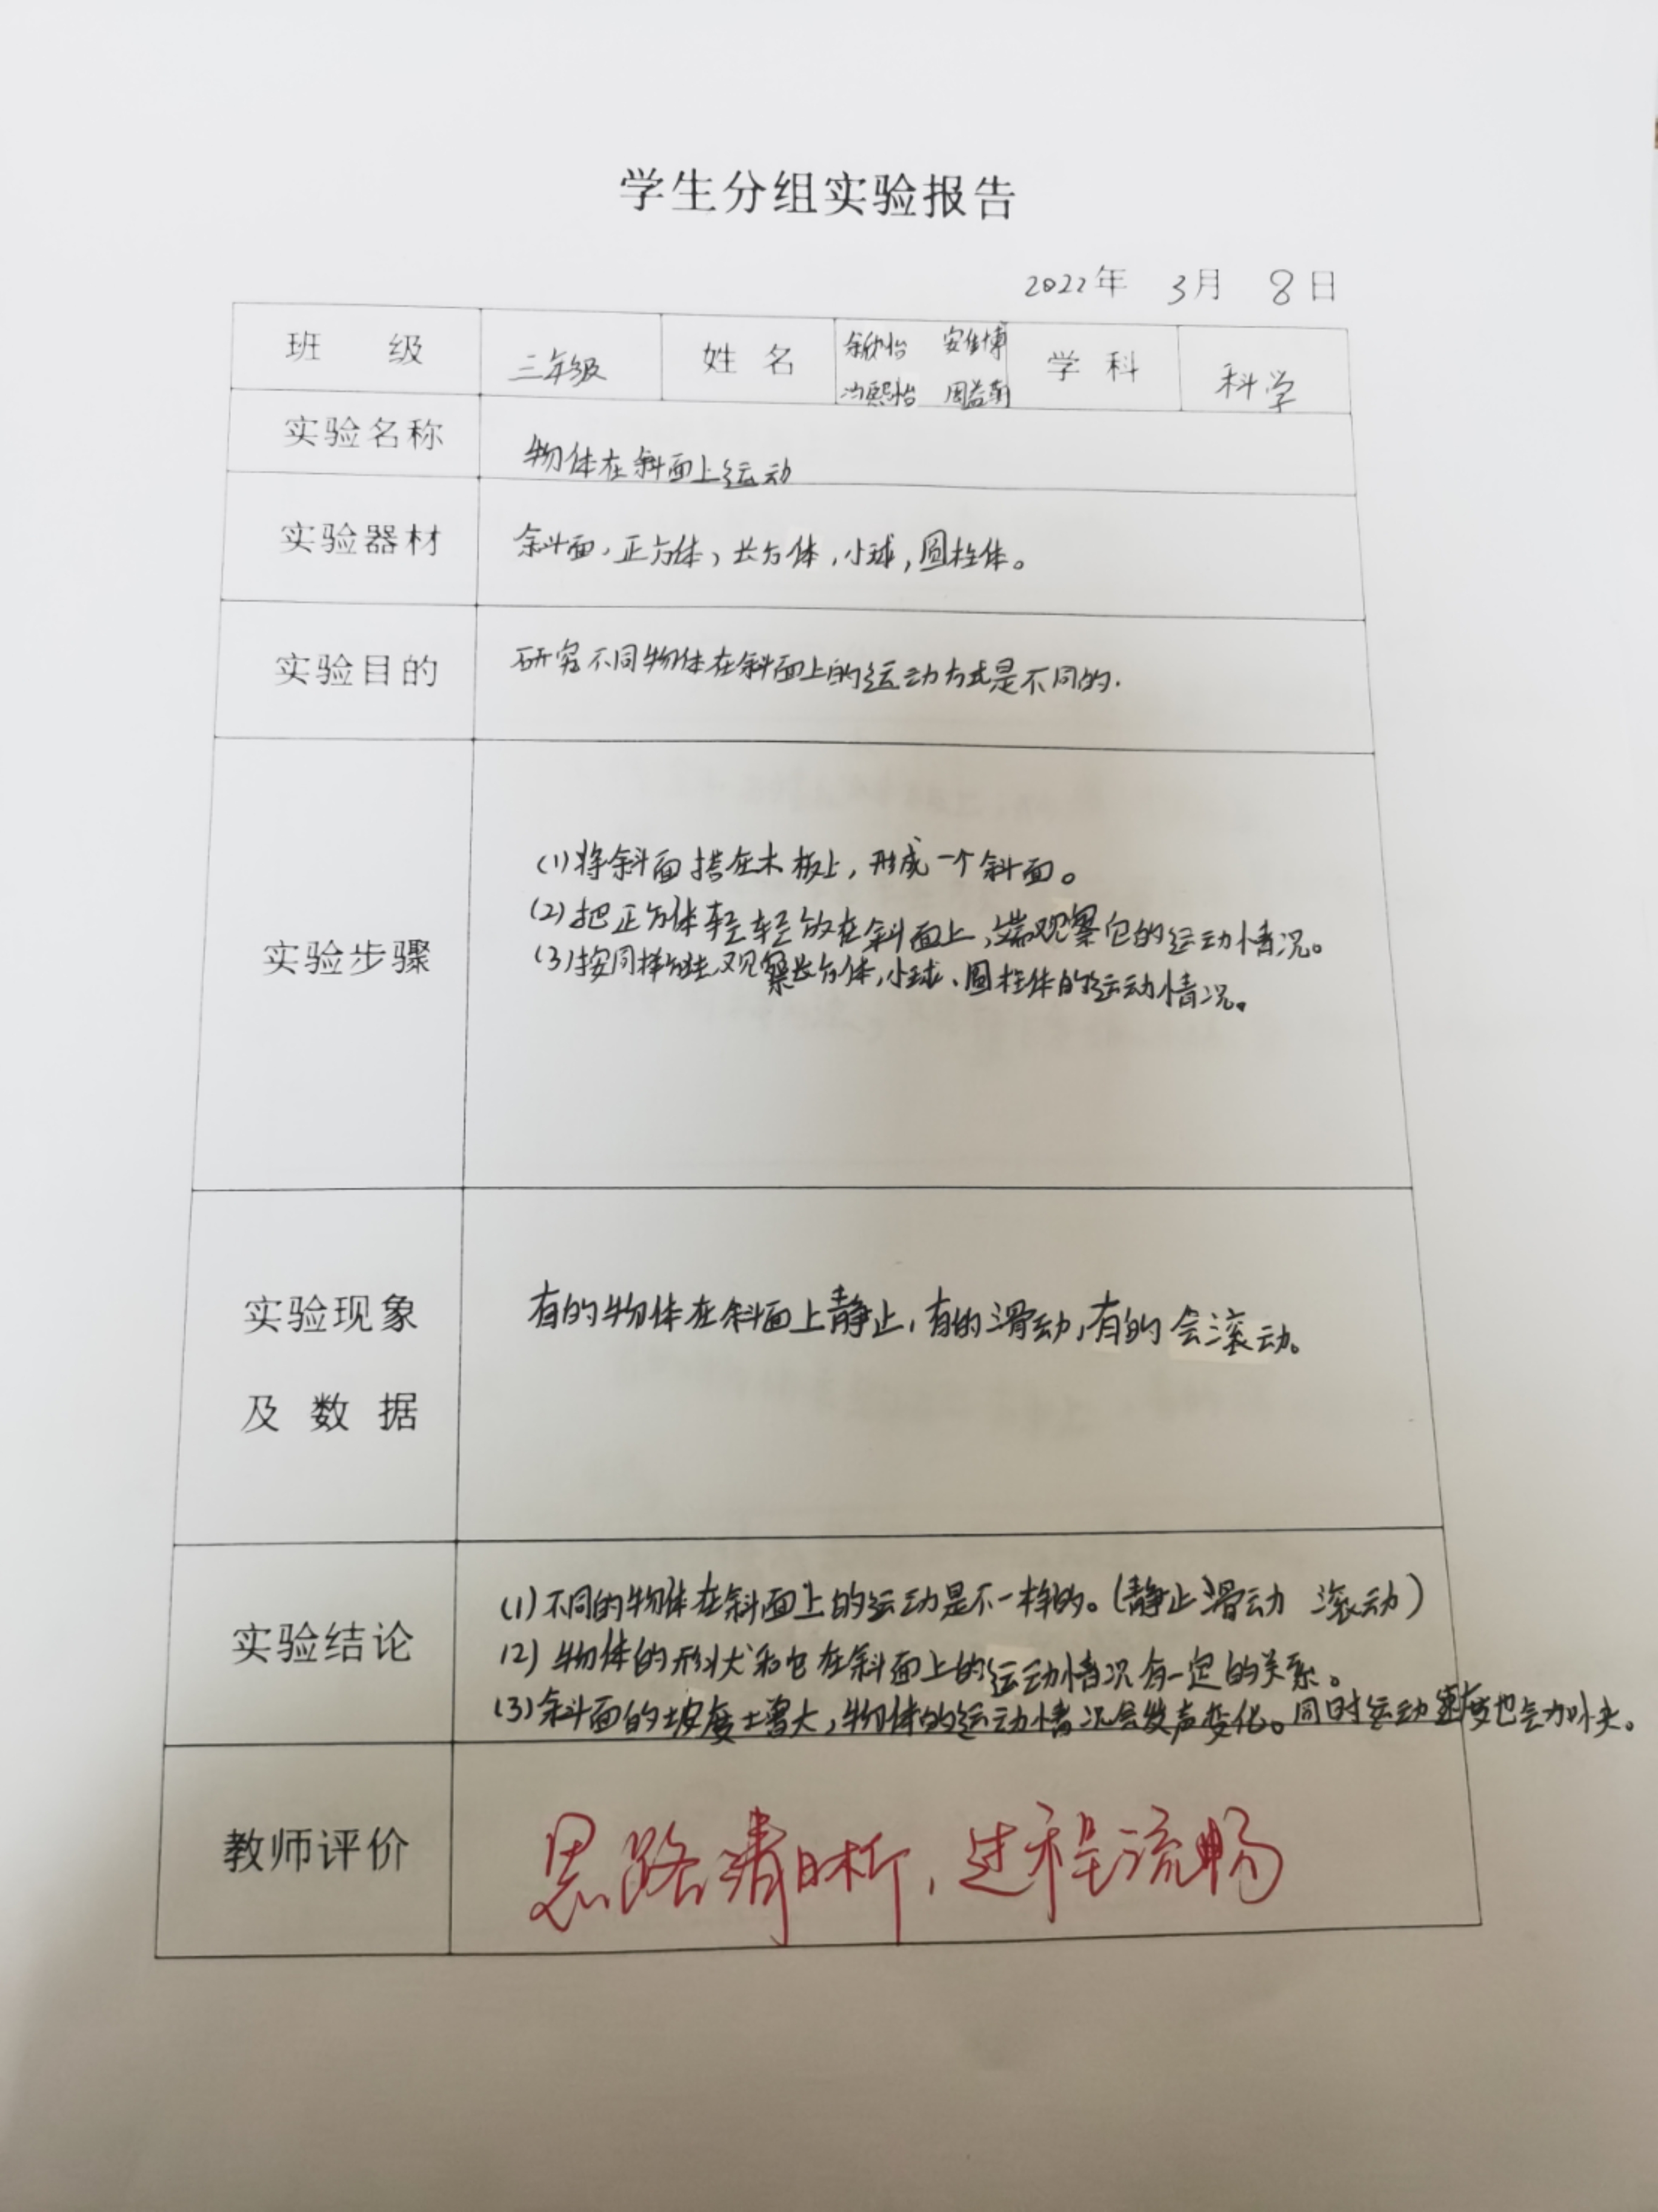 学生分组实验报告
2022年 3月 8日
班 级 三年级 姓 名 余欣怡 安佳博 学 科 科学
冯熙怡 周益朝
实验名称 物体在斜面上运动
实验器材 斜面、正方体、长方体,小球,圆柱体。
实验目的 研究不同物体在斜面上的运动方式是不同的.
实验步骤
(1)将斜面搭在木板上,形成一个斜面。
(2)把正方体轻轻放在斜面上,端观察它的运动情况。
(3)按同样方法,观察长方体,小球、圆柱体的运动情况。
实验现象
及 数 据
有的物体在斜面上静止,有的滑动,有的会滚动。
实验结论
(1)不同的物体在斜面上的运动是不一样的。(静止 滑动 滚动)
(2)物体的形状和它在斜面上的运动情况有一定的关系。
(3)斜面的坡度增大,物体的运动情况会发声变化。同时运动速度也会加快。
教师评价 思路清晰,过程流畅